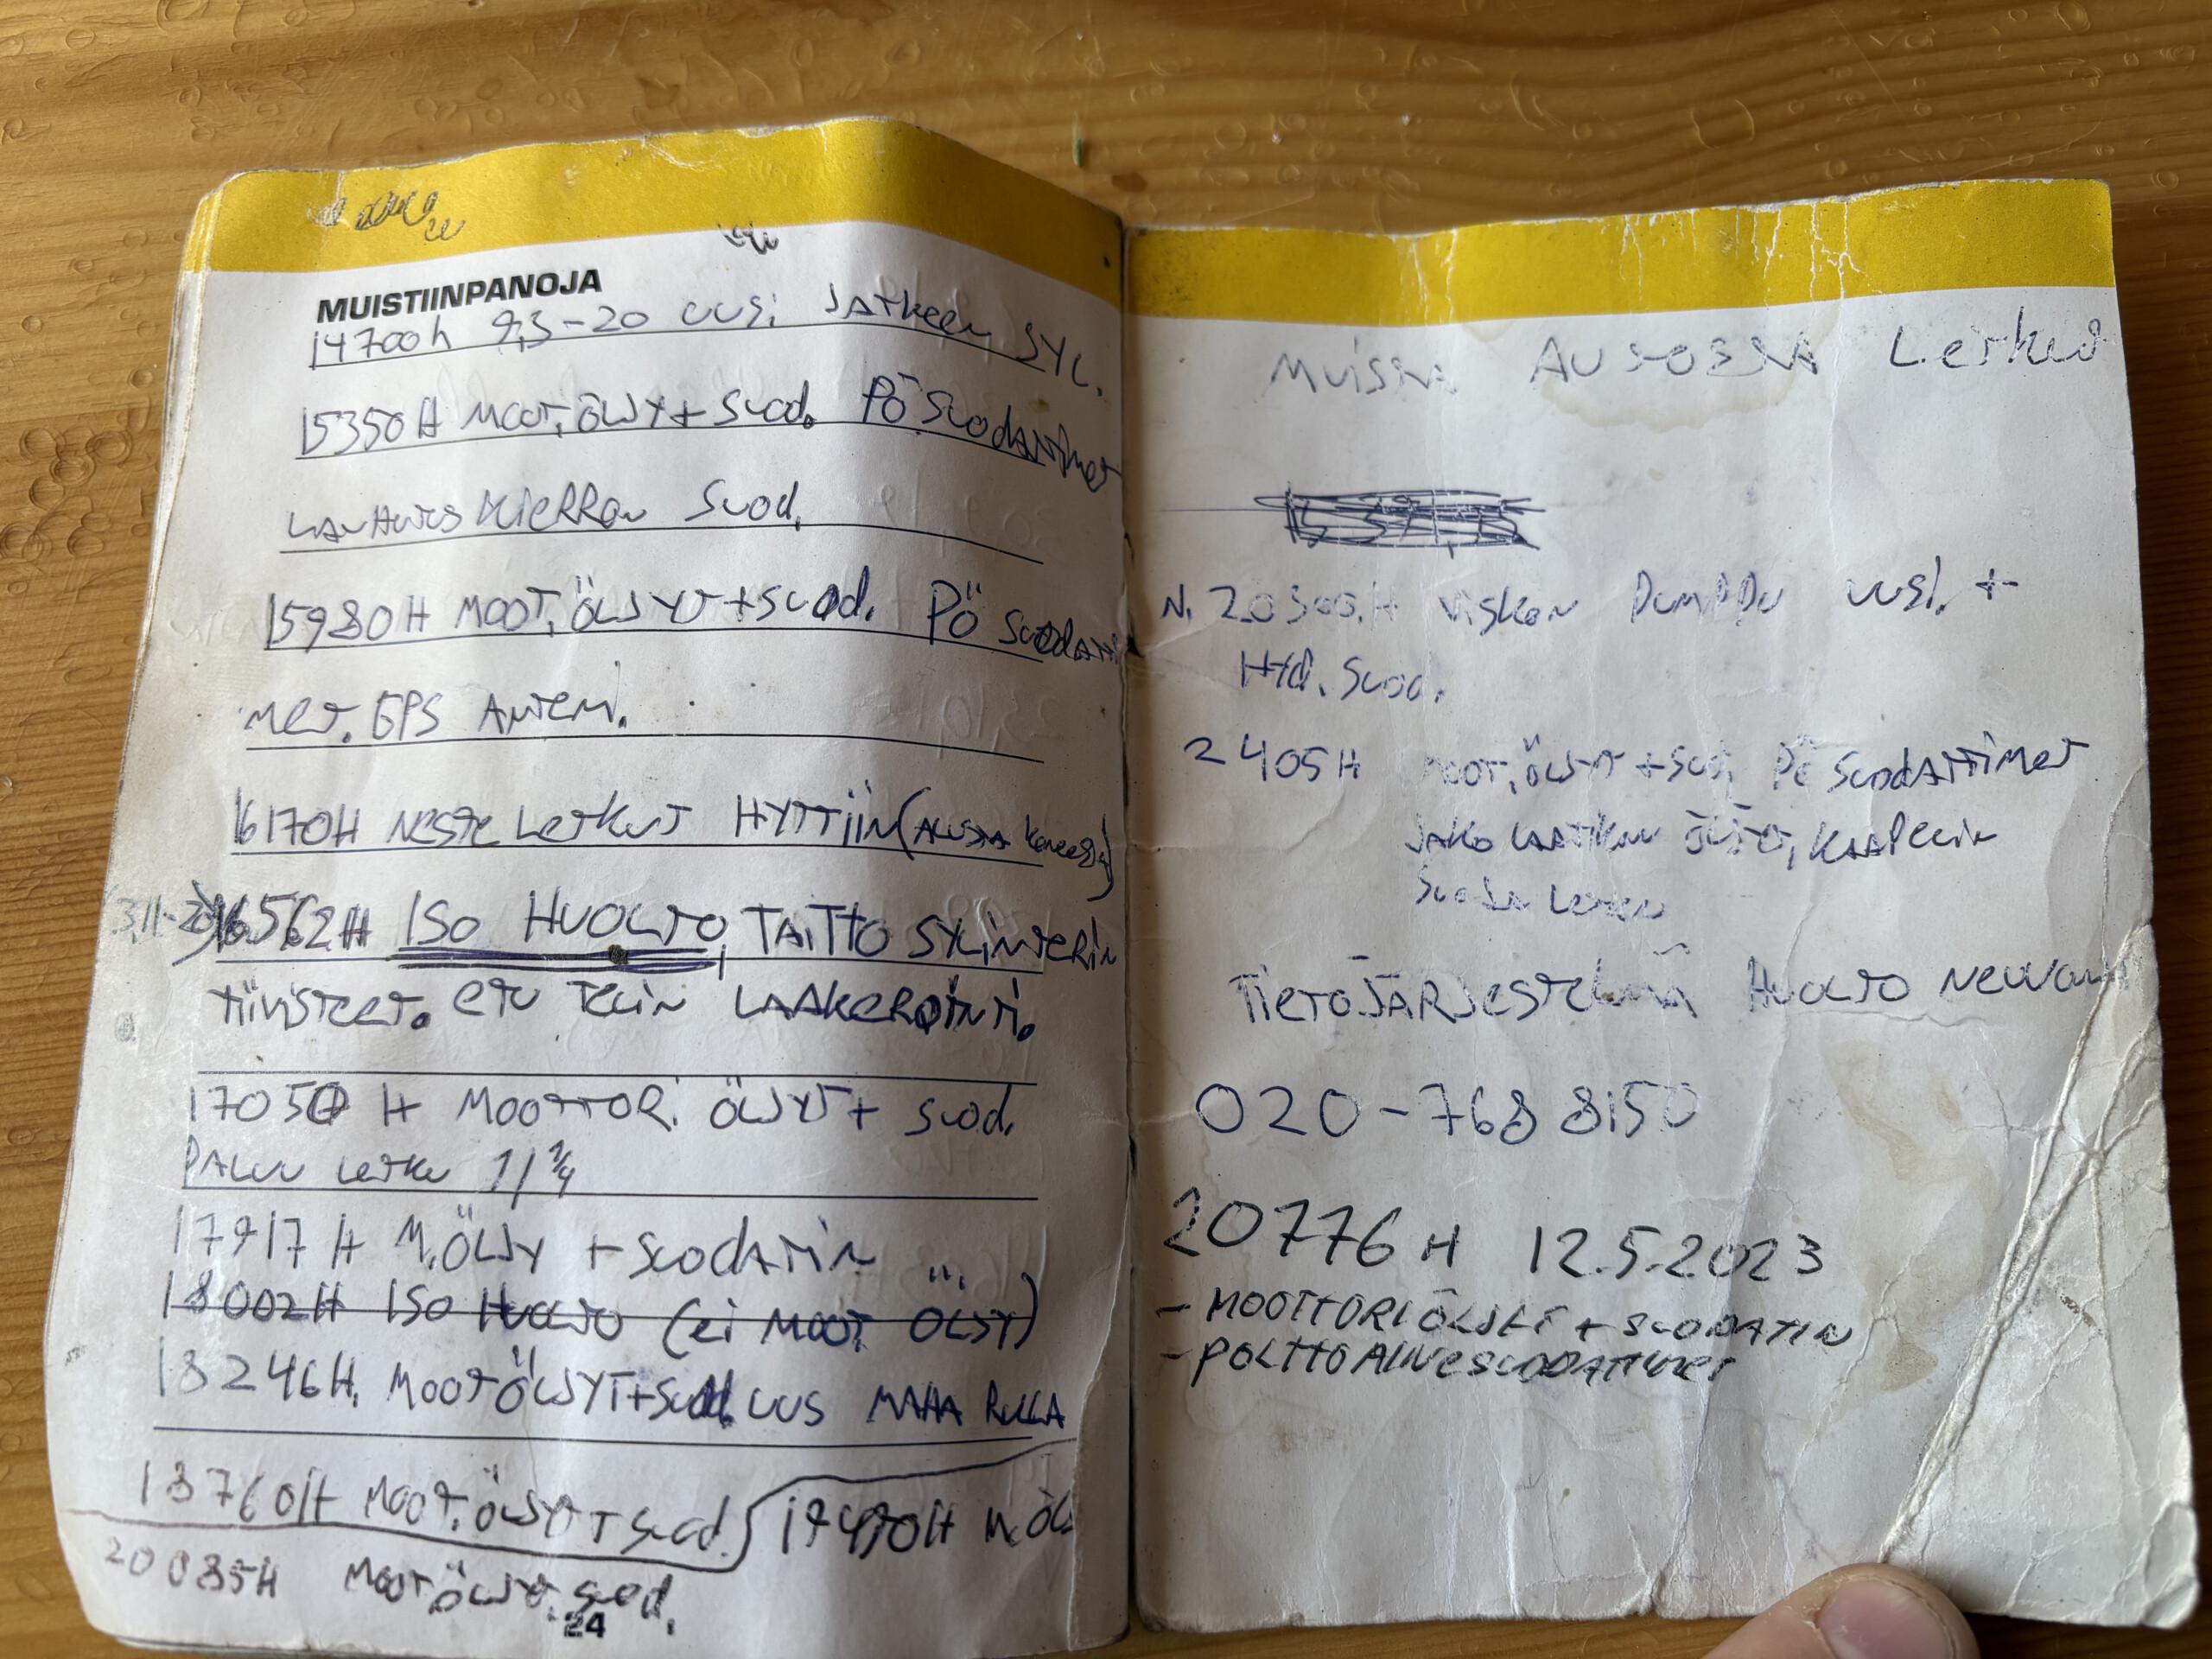 MUISTIINPANOJA
14700h 9,3-20 UUSi JATKEEN SYL.
15350H MOOT,ÖLJYT+Suod. PÖ SuodATTimet
LAUHDUS KIERRON Suod.
15980H MOOT,ÖLJYT+Suod. PÖ SuodATTi
met. GPS ANTENNi.
16170H NESTE LETKUT HYTTiiN (ALUSTA koneesta)
16562H ISO HUOLTO, TAITTO SYLiNTERiN
TiiViSTEET. ETU TELiN LAAKERÖiNTi.
17050 H MOOTTORi ÖLJYT+ Suod.
PALUU LETKU 1 1/4
17917 H M.ÖLJY + SUODATiN
18002H ISO HUOLTO (ei MOOT ÖLJY)
18246H. MOOT ÖLJYT+Suod. UUS MAHA RULLA
18760H MOOT.ÖLJYT+Suod.
19490H M.ÖL
20085H MOOT ÖLJYT. Suod.
24
MUiSTA LETKUT
N. 20300.H PUMPPU UUSi. +
Hyd. Suod.
2405H MOOT,ÖLJYT+Suod. PÖ SuodATTimet
JAKO LAATiKON ÖLJYT, KAAPELiN
SuoJA LETKU
TiETOJÄRJESTELMÄ HUOLTO NEUVONTA
020-768 8150
20776 H 12.5.2023
- MOOTTORiÖLJYT + SUODATiN
- POLTTOAiNESUODATTiMET